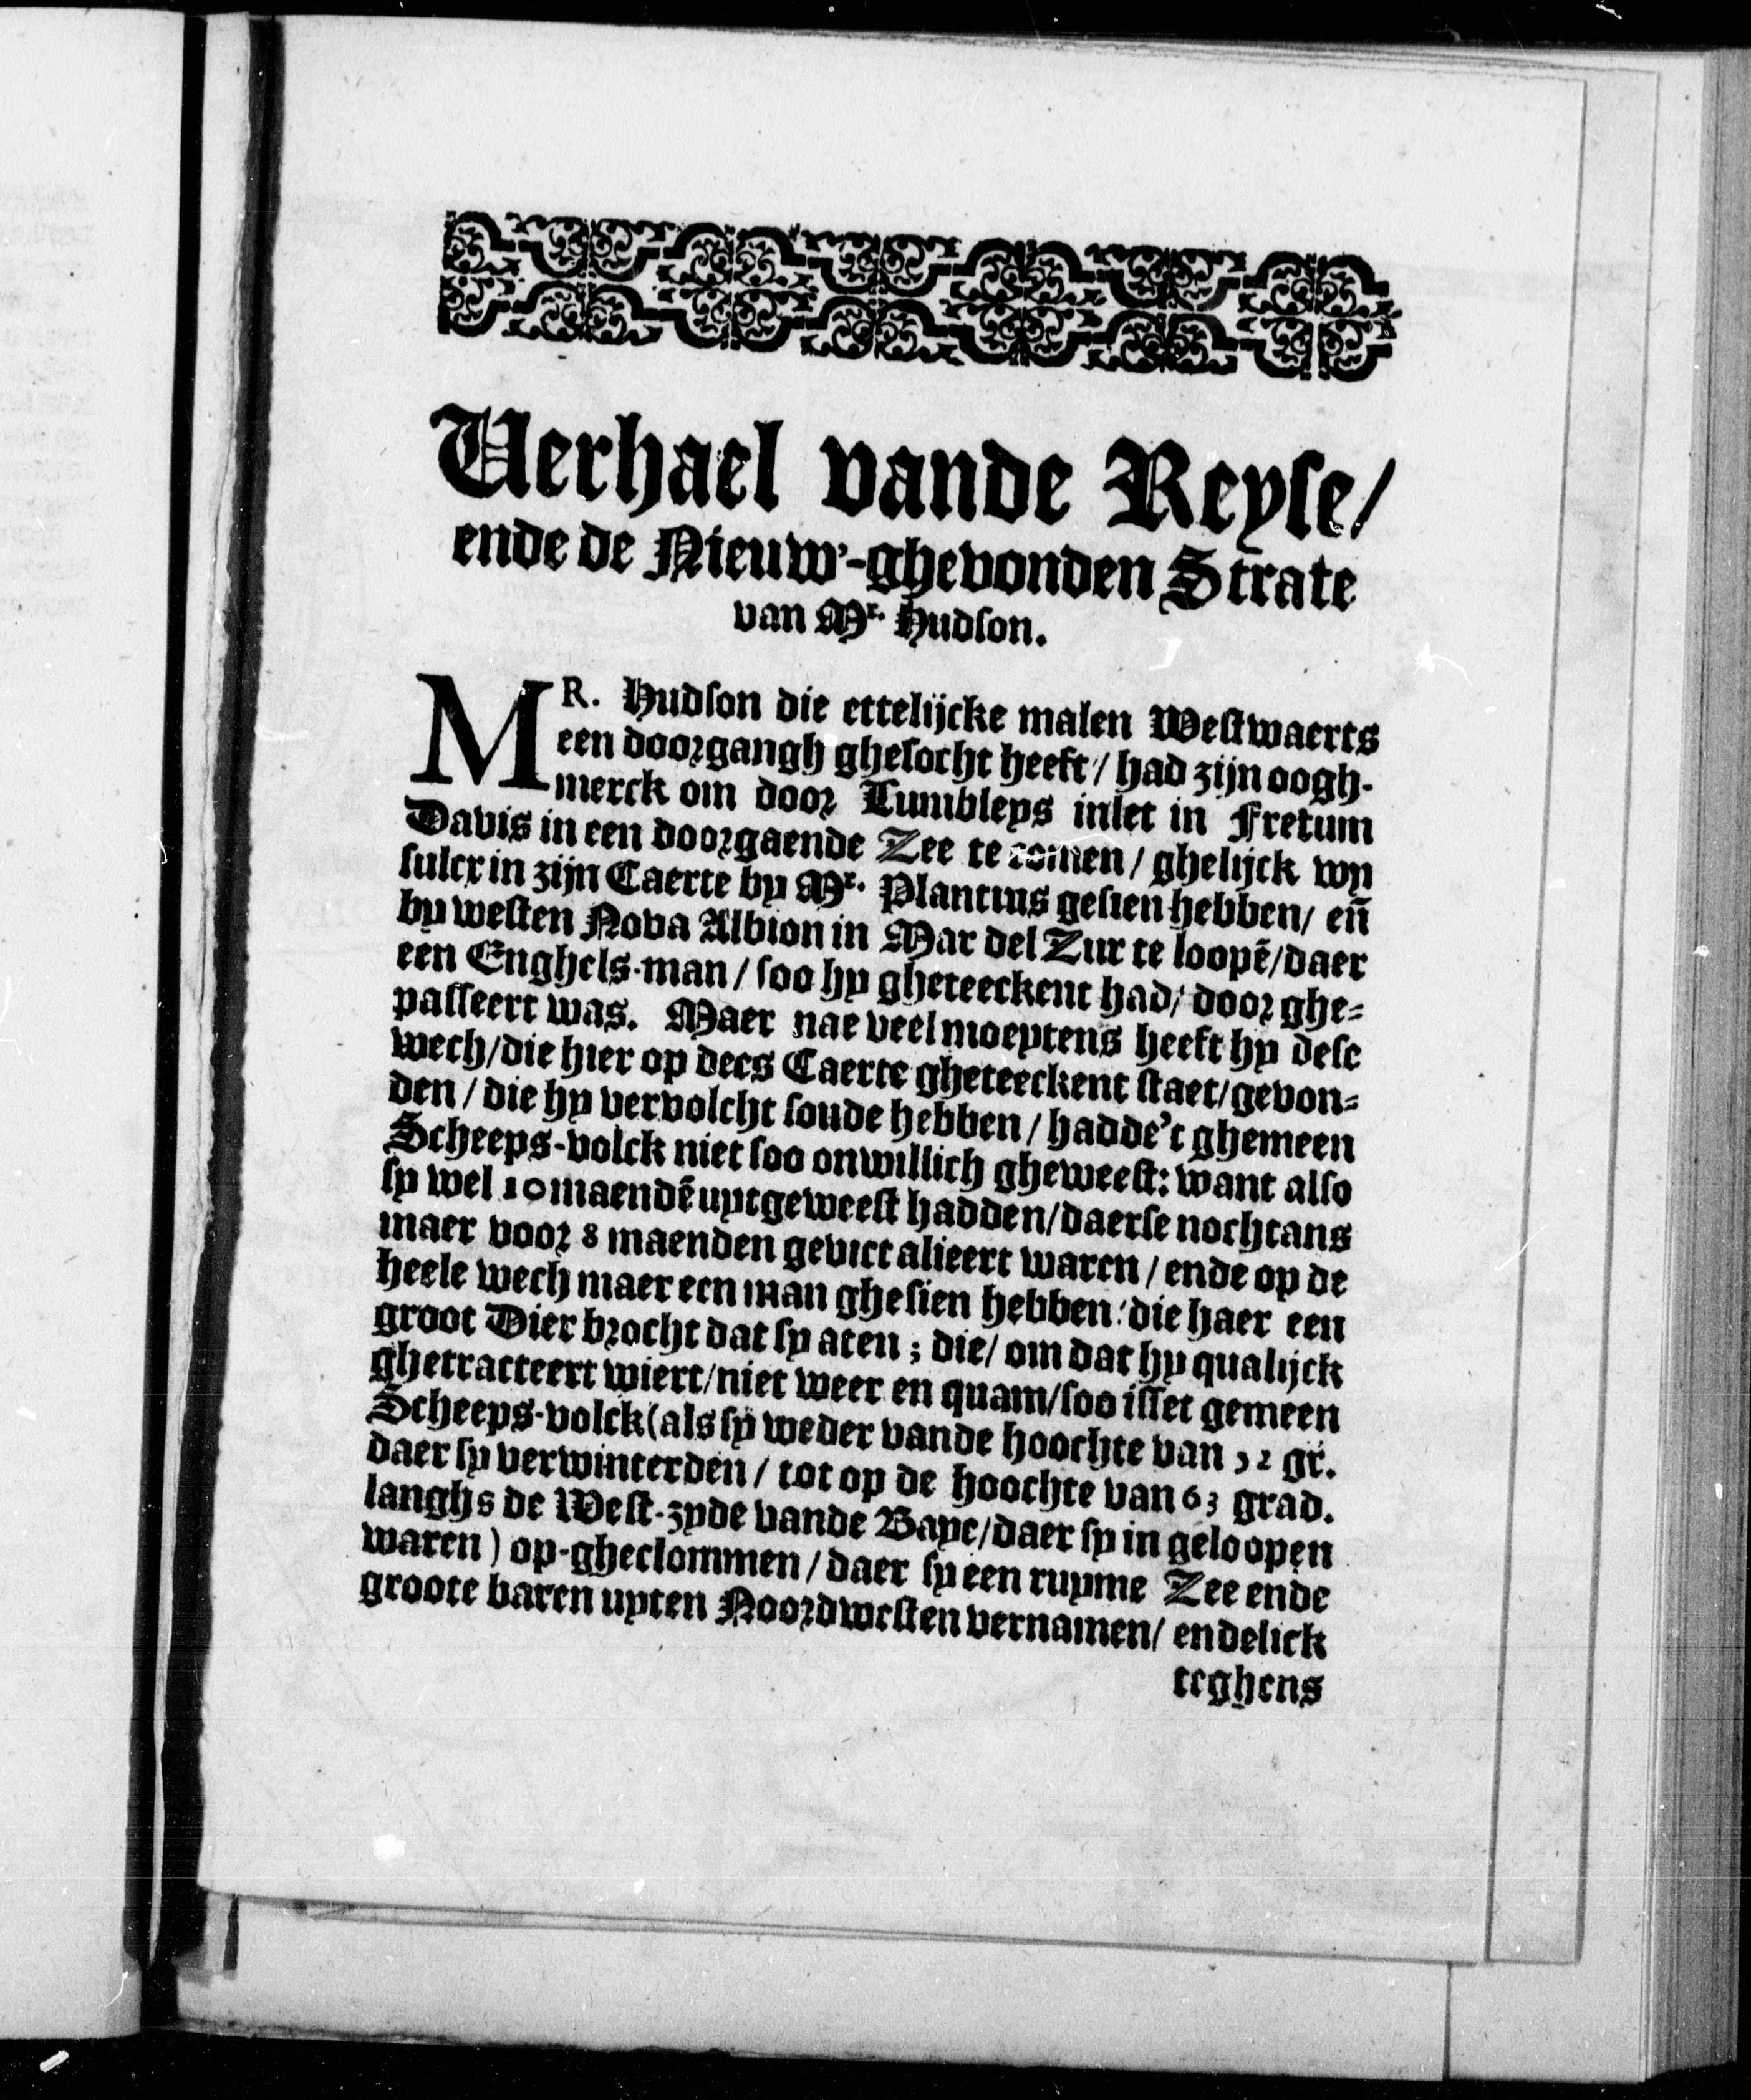 Verhael vande Reyse/
ende de Nieuw'-ghevonden Strate
van Mr. Hudson.
MR. Hudson die ettelijcke malen Westwaerts
een doorgangh ghesocht heeft/ had zijn oogh-
merck om door Lumbleys inlet in Fretum
Davis in een doorgaende Zee te comen/ ghelijck wy
sulcx in zijn Caerte by Mr. Plantius gesien hebben/ eñ
by westen Nova Albion in Mar del Zur te loopẽ/daer
een Enghels-man/ soo hy gheteeckent had/ door ghe-
passeert was. Maer nae veel moeytens heeft hy dese
wech/die hier op dees Caerte gheteeckent staet/gevon-
den/ die hy vervolcht soude hebben/ hadde't ghemeen
Scheeps-volck niet soo onwillich gheweest: want also
sy wel 10 maendẽ uytgeweest hadden/daerse nochtans
maer voor 8 maenden gevictalieert waren/ ende op de
heele wech maer een man ghesien hebben/ die haer een
groot Dier brocht dat sy aten; die/ om dat hy qualijck
ghetracteert wiert/niet weer en quam/soo isset gemeen
Scheeps-volck(als sy weder vande hoochte van 52 gr.
daer sy verwinterden/ tot op de hoochte van 63 grad.
langhs de West-zyde vande Baye/daer sy in geloopen
waren) op-gheclommen/ daer sy een ruyme Zee ende
groote baren uyten Noordwesten vernamen/ endelick
teghens